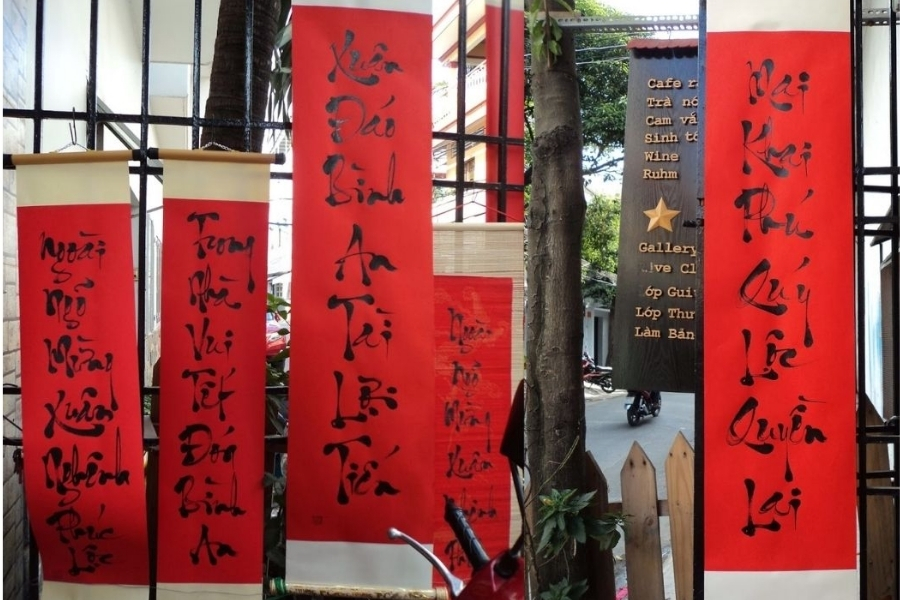 Ngoài Ngõ Mừng Xuân Nghênh Phúc Lộc
Trong Nhà Vui Tết Đón Bình An
Xuân Đáo Bình An Tài Lợi Tiến
Ngoài Ngõ Mừng Xuân Nghênh
Cafe
Trà
Cam
Sinh tố
Wine
Ruhm
Gallery
Lớp
Làm
Mai Khai Phú Quý Lộc Quyền Lai